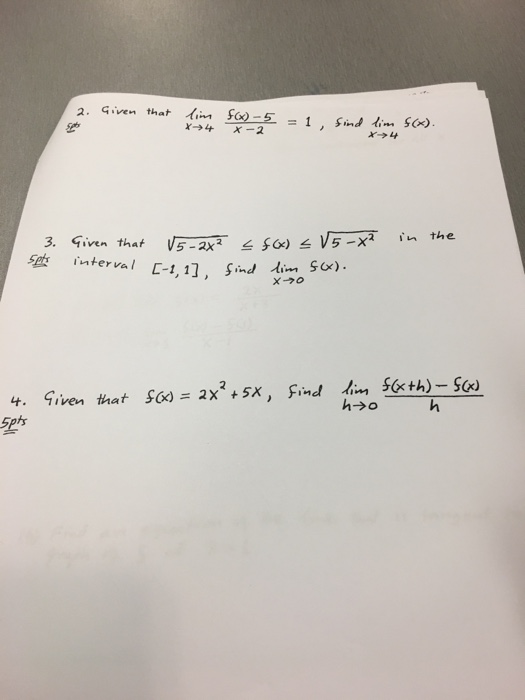 2. Given that lim x→4 f(x)-5 / x-2 = 1, find lim x→4 f(x).
5pts
3. Given that √5-2x² ≤ f(x) ≤ √5-x² in the
5pts interval [-1, 1], find lim x→0 f(x).
4. Given that f(x) = 2x² + 5x, find lim h→0 f(x+h) - f(x) / h
5pts